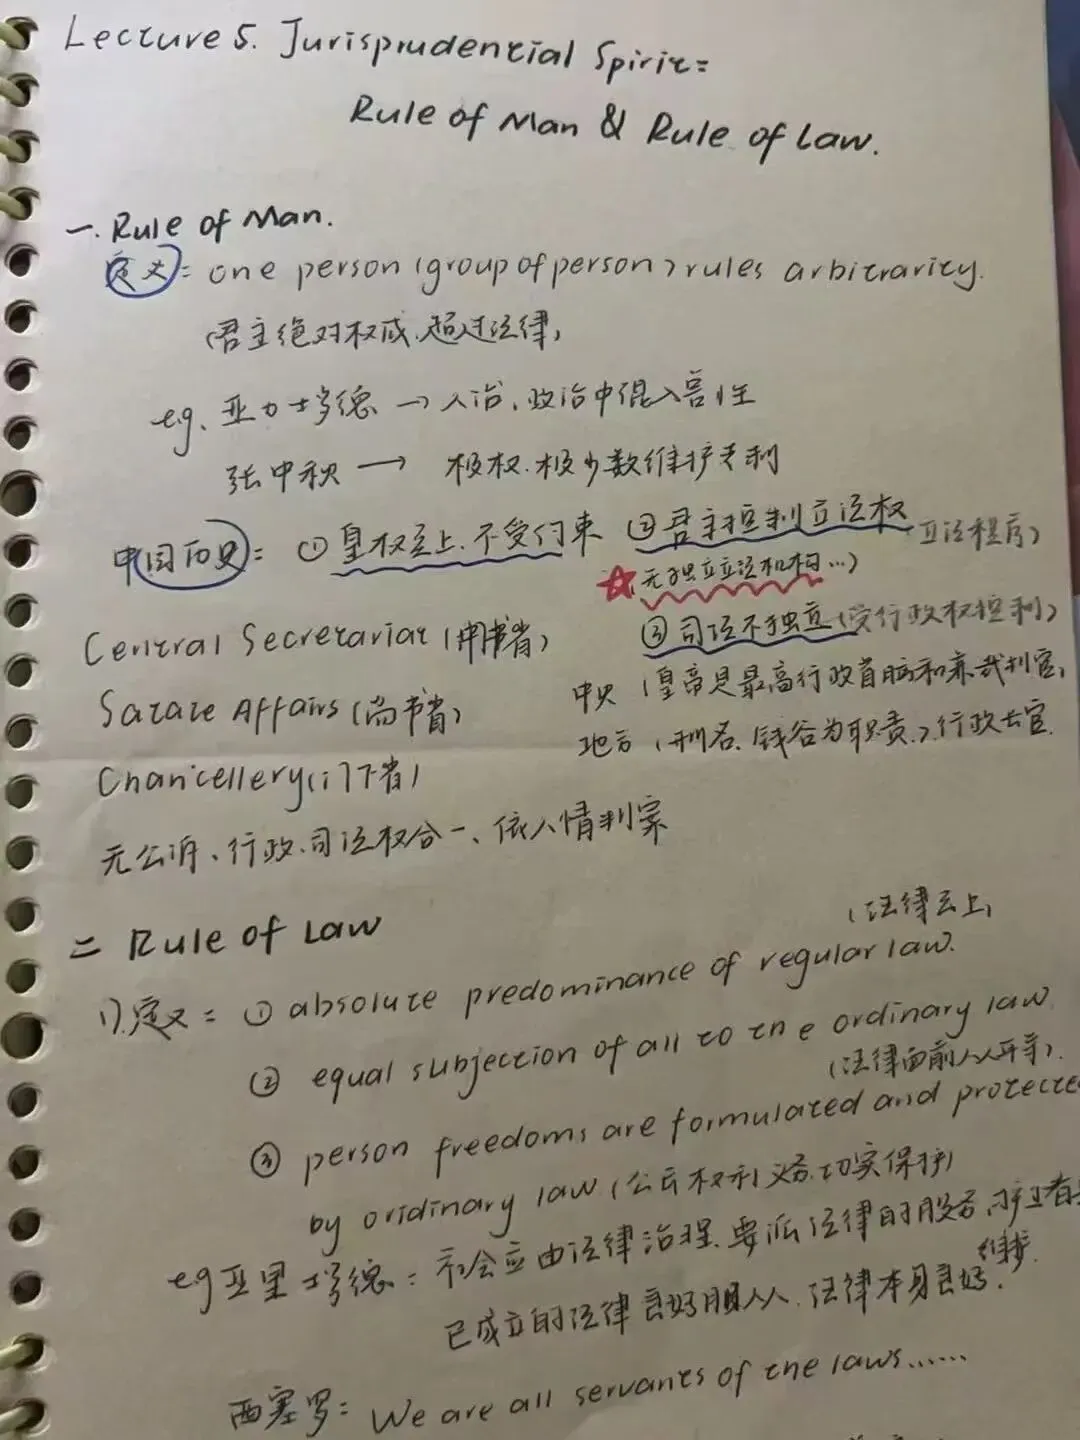 Lecture 5. Jurisprudential Spirit:
Rule of Man & Rule of Law.
一. Rule of Man.
定义: one person (group of person) rules arbitrarity.
(君主绝对权威, 超过法律)
eg. 亚力士多德 → 人治, 政治中混入兽性
张中秋 → 极权, 极少数维护专利
中国历史: ① 皇权至上, 不受约束 ② 君主控制立法权 (立法程序)
☆(无独立立法机构…)
③ 司法不独立 (受行政权控制)
Central Secretariat (中书省)
中央 (皇帝是最高行政首脑和亲裁判官)
Satate Affairs (尚书省)
地方 (刑名, 钱谷为职责,) 行政长官.
Chancellery (门下省)
无公诉、行政、司法权合一、依人情判案
二 Rule of Law
(法律至上)
1). 定义: ① absolute predominance of regular law.
② equal subjection of all to the ordinary law.
(法律面前人人平等).
③ person freedoms are formulated and protected
by oridinary law (公民权利义务, 切实保护)
eg 亚里士多德: 社会应由法律治理, 要派法律的服务,
维护
已成立的法律良好服人人, 法律本身良好.
西塞罗: We are all servants of the laws……